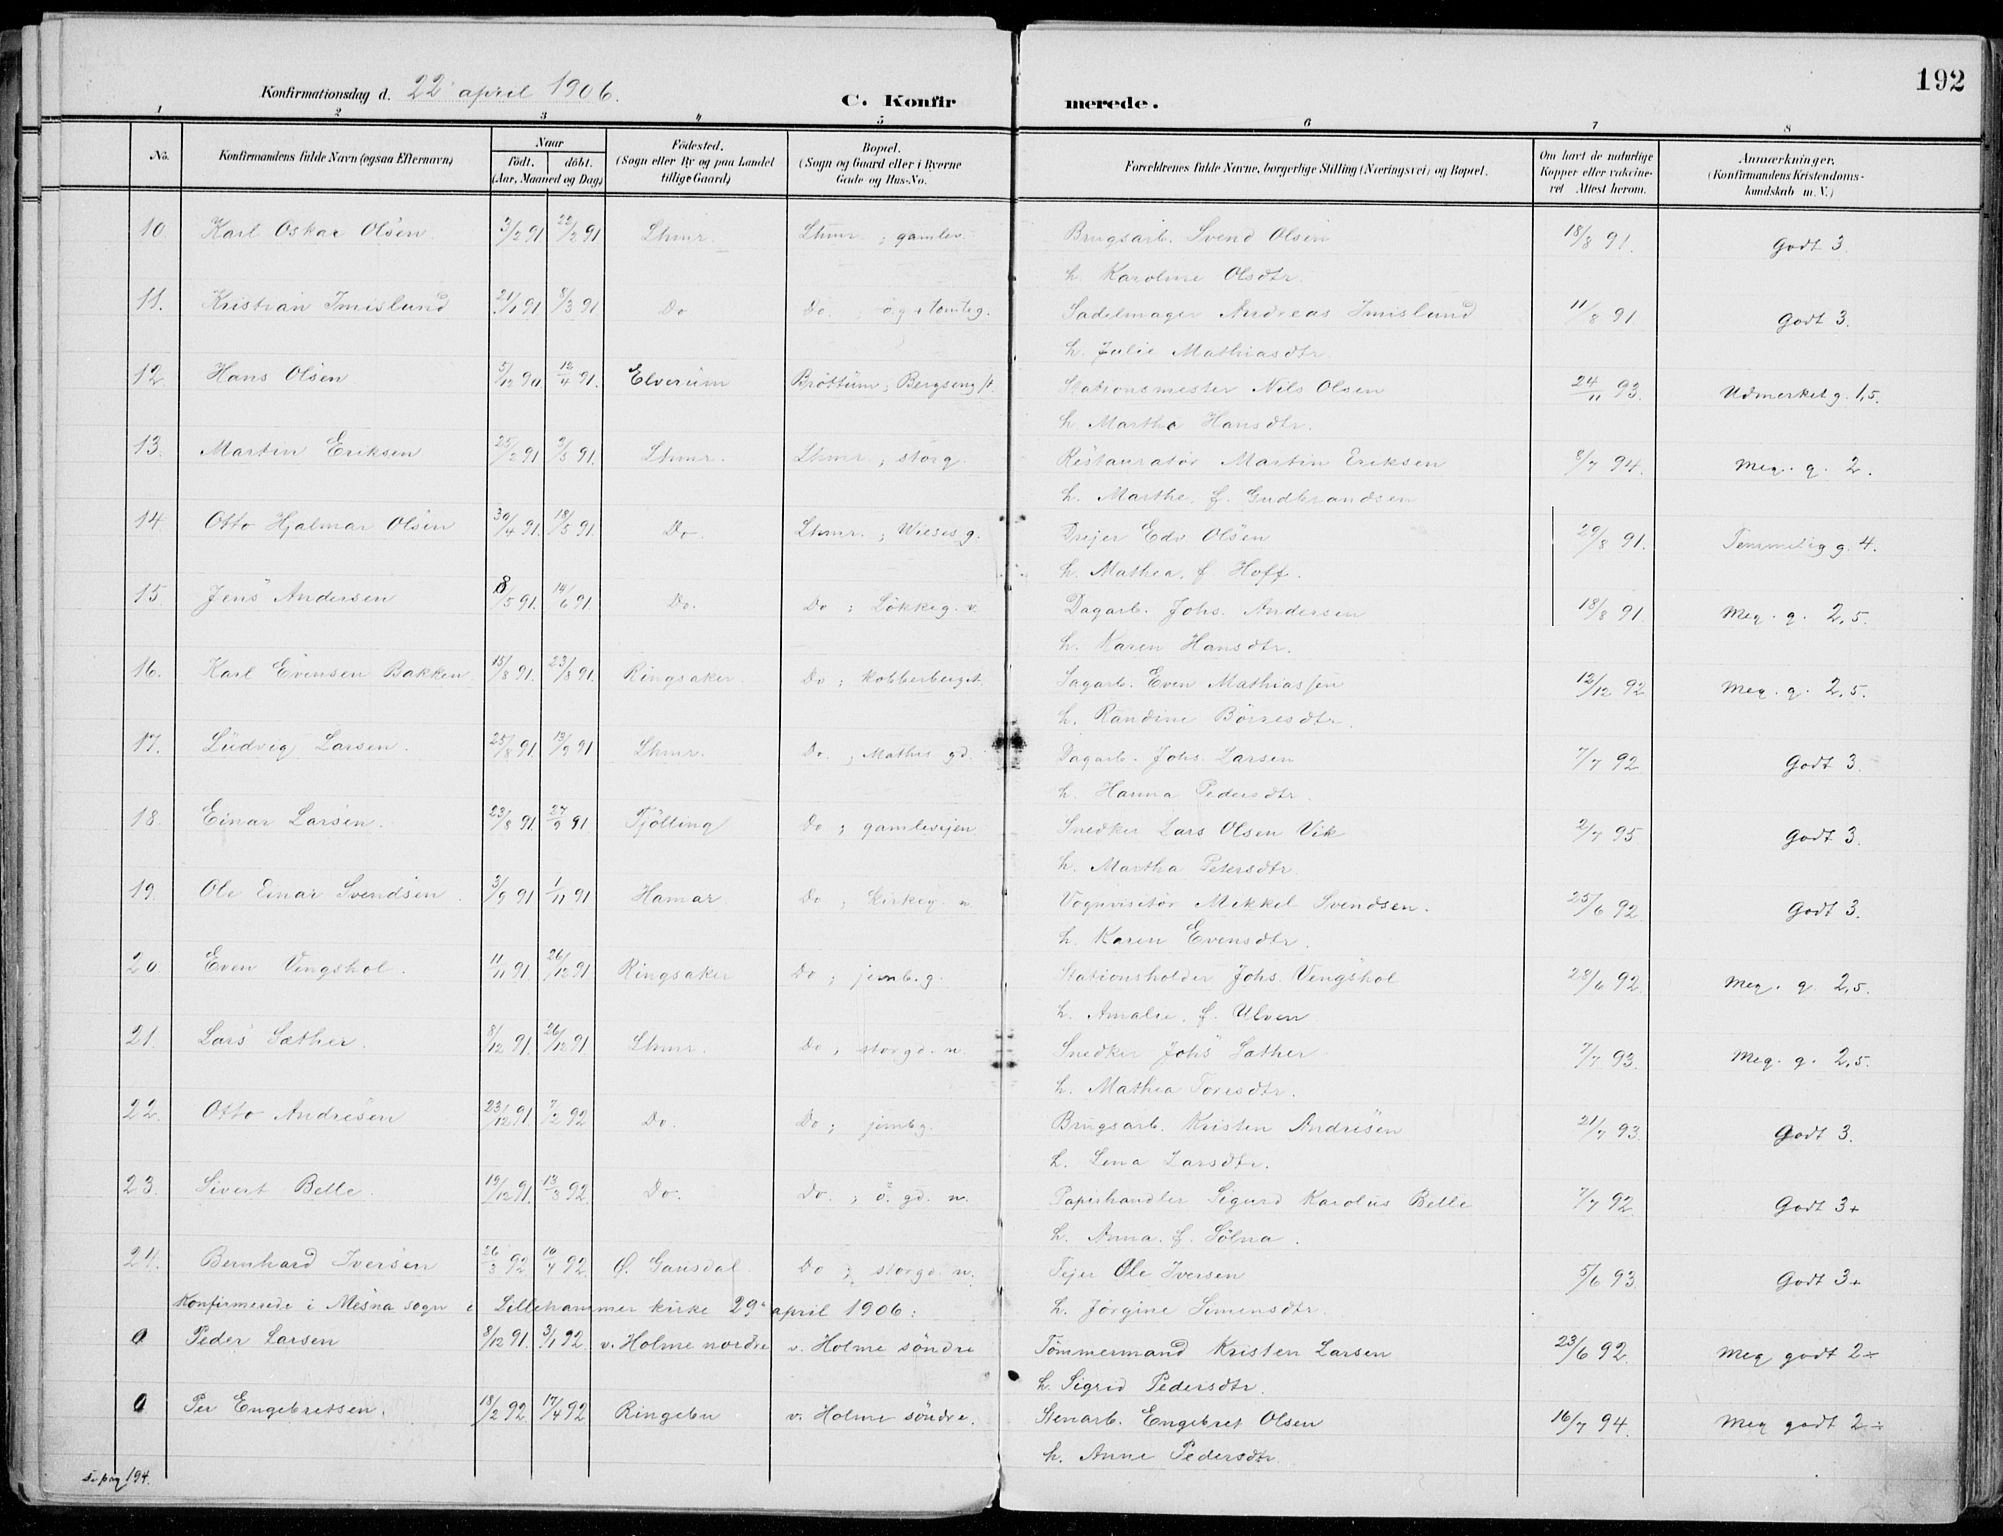 192
Konfirmationsdag d. 22 april 1906.
C. Konfirmerede.
1 2 3 4 5 6 7 8
No. Konfirmandens fulde Navn (ogsaa Efternavn) Naar födt. döbt. (Aar, Maaned og Dag) Födested. (Sogn eller By og paa Landet tillige Gaard) Bopæl. (Sogn og Gaard eller i Byerne Gade og Hus-No. Forældrenes fulde Navne, borgerlige Stilling (Næringsvei) og Bopæl. Om havt de naturlige Kopper eller vakcineret Attest herom. Anmærkninger. (Konfirmandens Kristendomskundskab m. V.)
10. Karl Oskar Olsen 3/2 91 22/2 91 Lhmr. Lhmr. ; gamlev. Brugsarb. Svend Olsen 18/8 91. Godt 3
h. Karoline Olsdtr.
11. Kristian Imislund 21/1 91 8/3 91 Do Do. Sadelmager Andreas Imislund 11/8 91 Godt 3.
h. Julie Mathiasdtr
12. Hans Olsen 5/12 90 12/4 91. Elverum Bröttum; Bergseng st. Stationsmester Nils Olsen 24/11 93. Udmerket g. 1,5.
h. Martha Hansdtr.
13. Martin Eriksen 25/2 91 3/5 91. Lhmr. Lhmr. ; storg. Restauratör Martin Eriksen 8/7 94. Meg. g. 2.
h. Marthe, f. Gudbrandsen
14. Otto Hjalmar Olsen 30/4 91. 18/5 91. Do. Lhmr. ; Wieses g. Drejer Edv Olsen 29/8 91. Temmelig g. 4.
h. Mathea, f Hoff.
15 Jens Andersen 8/5 91. 14/6 91. Do. Do ; Lökkeg. v. Dagarb. Johs. Andersen 18/8 91. Meg. g. 2,5.
h. Karen Hansdtr.
16. Karl Evensen Bakken 15/8 91. 23/8 91. Ringsaker. Do ; Kobberberget. Sagarb. Even Mathiassen 12/12 92 Meg. g. 2,5.
h. Randine Börresdtr.
17. Ludvig Larsen. 25/8 91 13/9 91 Lhmr. Do. ; Mathis gd. Dagarb. Johs. Larsen 7/7 92 Godt 3.
h. Hanna Pedersdtr.
18. Einar Larsen. 23/8 91. 27/9 91 Tjölling Do ; gamlevejen Snedker Lars Olsen Vik 2/7 95 Godt 3.
h. Martha Petersdtr.
19. Ole Einar Svendsen. 3/9 91 1/11 91 Hamar Do ; Kirkeg. n. Vognvisitör Mikkel Svendsen. 25/6 92 Godt 3.
h. Karen Evensdtr.
20. Even Vengshol. 11/11 91 26/12 91 Ringsaker Do ; jernb. g. Stationsholder Johs. Vengshol 28/6 92. Meg. g. 2,5.
h. Amalie, f. Ulven
21. Lars Sæther. 8/12 91. 26/12 91 Lhmr. Do ; storgd. n. Snedker Johs Sæther 7/7 93. Meg. g. 2,5.
h. Mathea Toresdtr.
22. Otto Andresen 23/12 91. 7/2 92 Do. Do ; jernbg. Brugsarb. Kristen Andresen 21/7 93. Godt 3.
h. Lena Larsdtr.
23. Sivert Belle. 19/12 91. 13/3 92. Do. Do. ; ö. gd. n. Papirhandler Sigurd Karolus Belle 7/7 92. Godt 3+
h. Anna. f. Sölna.
24. Bernhard Iversen 26/3 92 10/4 92. Ø. Gausdal. Do ; storgd. n. Ole Iversen 5/6 93. Godt 3+
Konfirmerede i Mesna sogn i Lillehammer kirke 29 april 1906: h. Jörgine Simensdtr.
0 Peder Larsen 8/12 91. 3/1 92. v. Holme nordre v. Holme söndre Tömmermand Kristen Larsen 23/6 92. Meg godt 2÷
h. Sigrid Pedersdtr.
0 Per Engebretsen. 18/2 92. 17/4 92 Ringebu v. Holme söndre. Stenarb. Engebret Olsen 16/7 94. Meg godt 2÷
h. Anne Pedersdtr
s. pag 194.